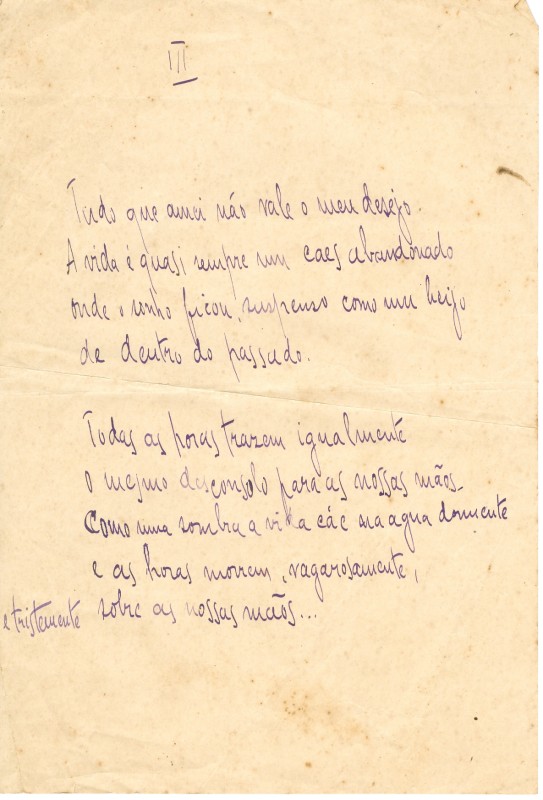 III
Tudo que amei não vale o meu desejo.
A vida é quasi sempre um caes abandonado
onde o sonho ficou, suspenso como um beijo
de dentro do passado.
Todas as horas trazem igualmente
o mesmo desconsolo para as nossas mãos.
Como uma sombra a vida cáe na agua dormente
e as horas morrem, vagarosamente,
e tristemente sobre as nossas mãos...